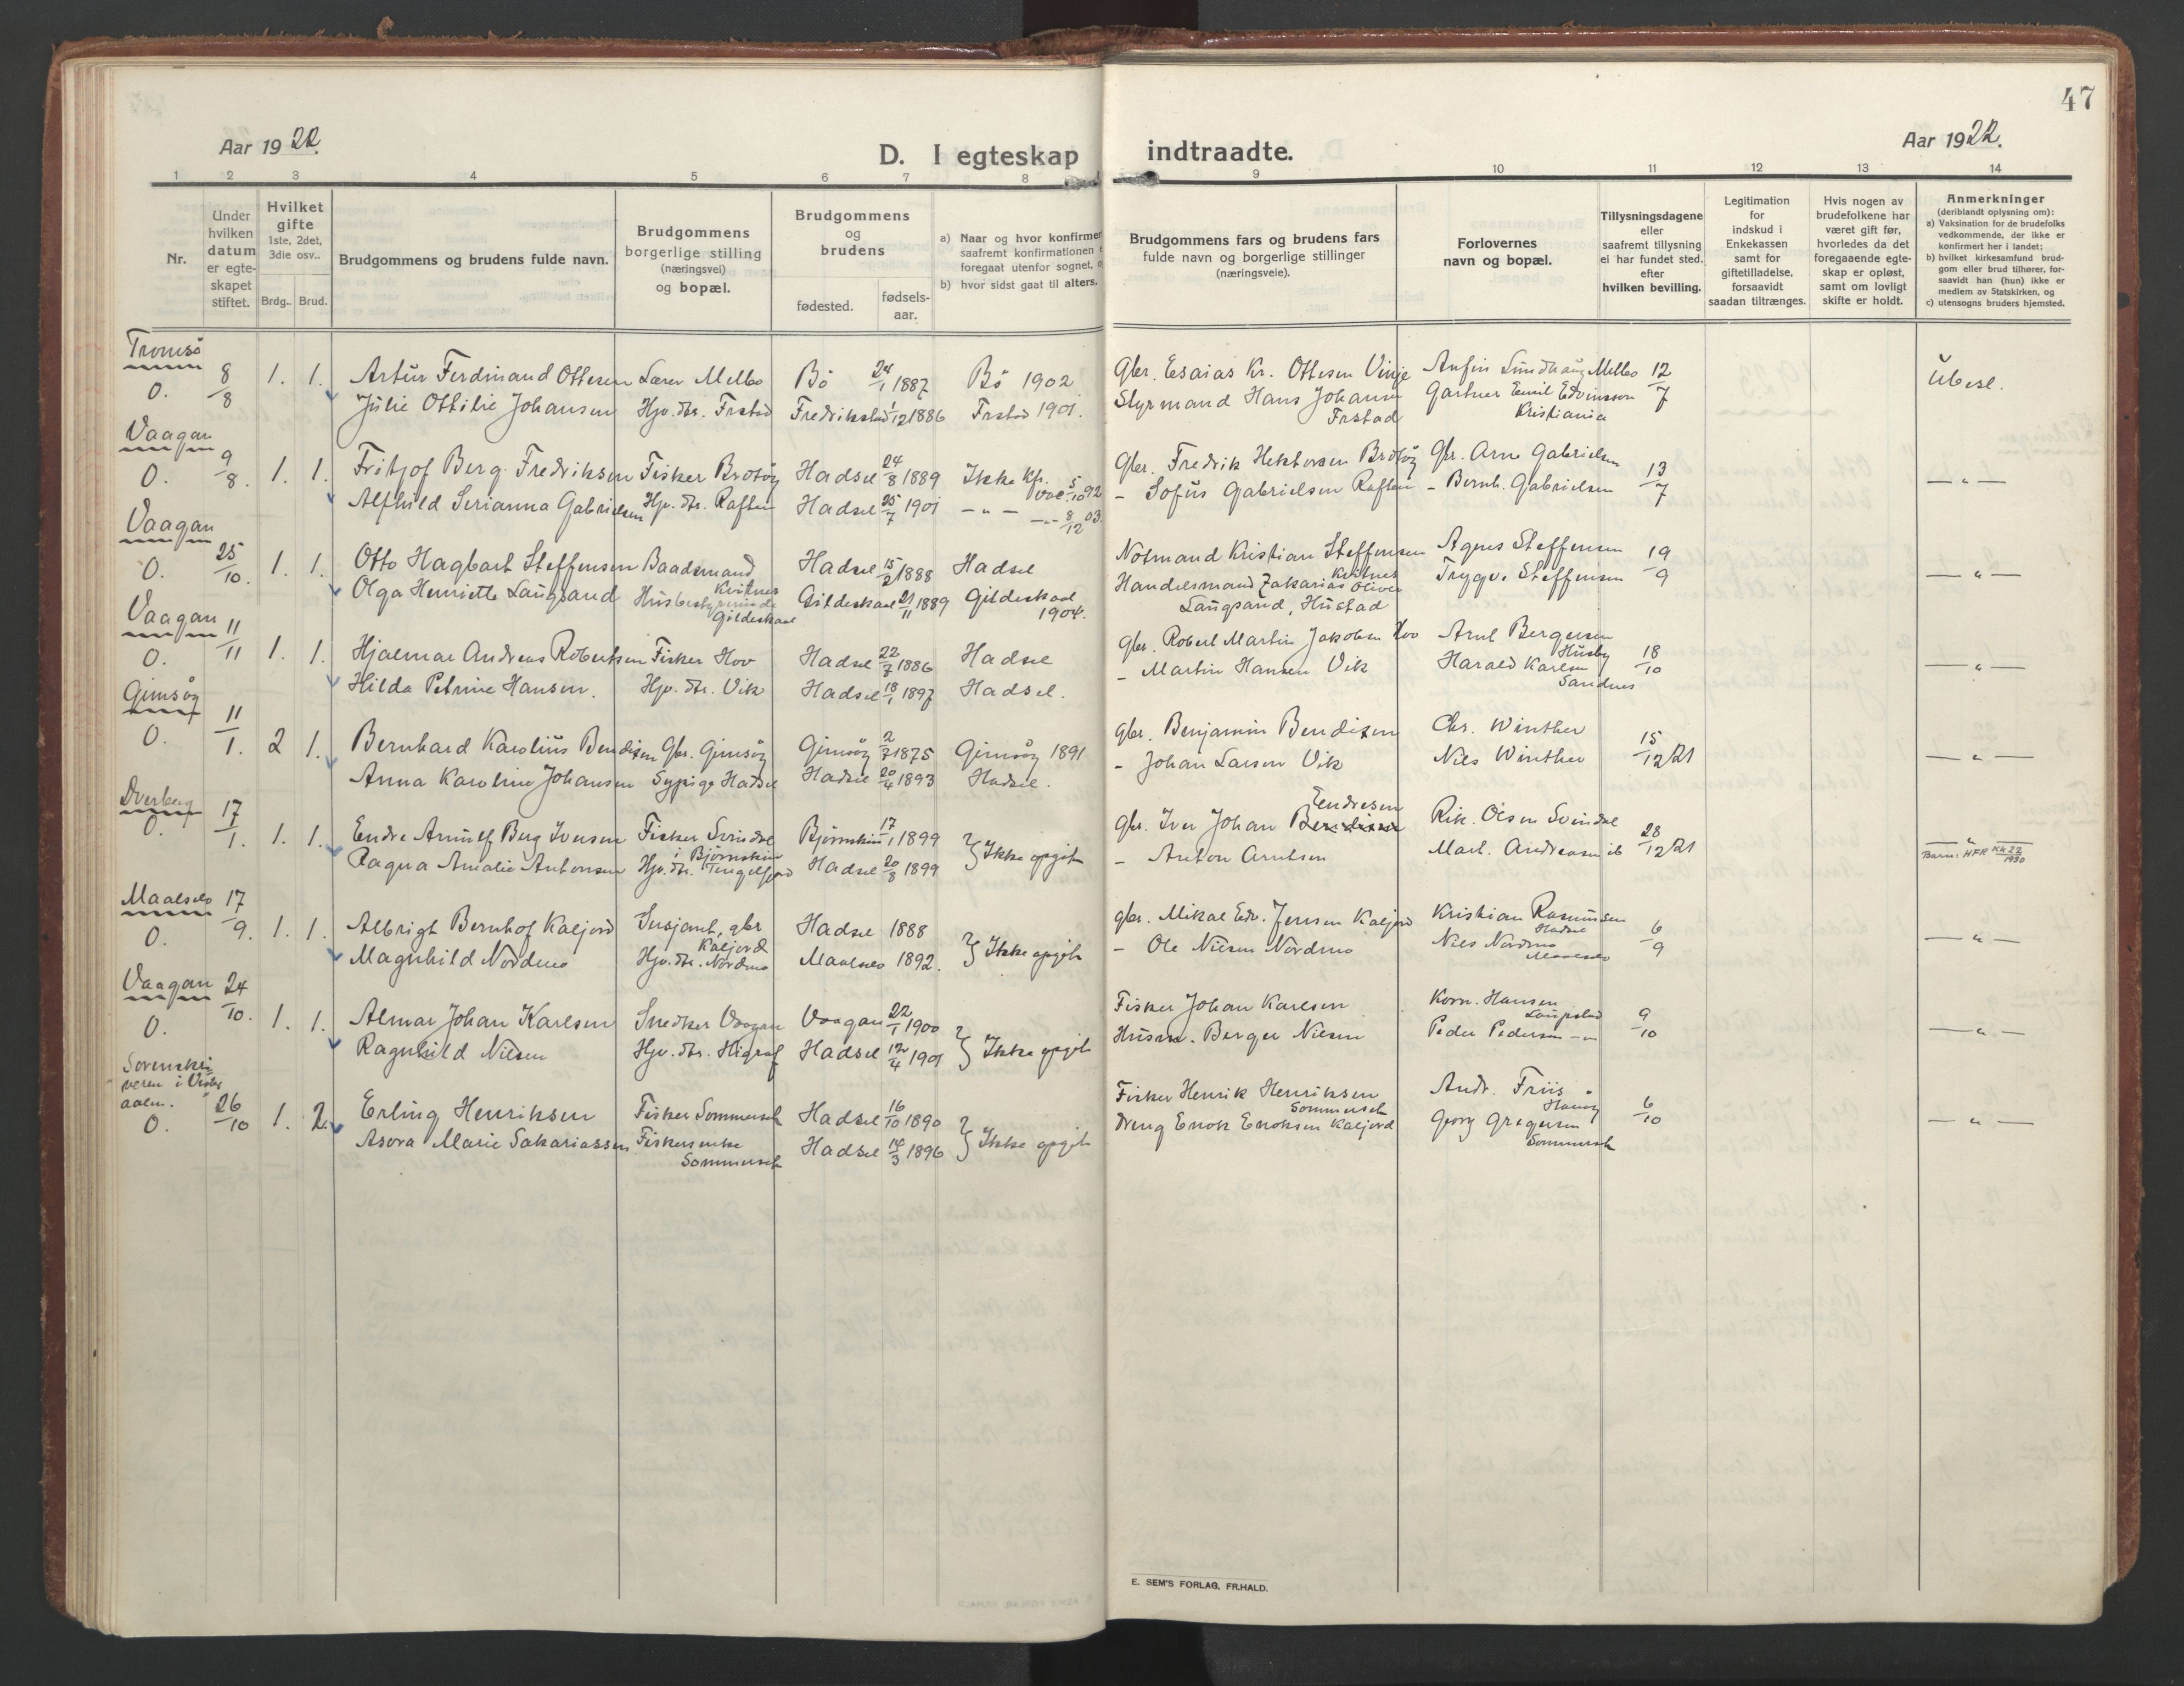 47
Aar 1922.
D. I egteskap indtraadte.
Aar 1922.
1 2 3 4 5 6 7 8 9 10 11 12 13 14
Nr.
Under hvilken datum er egteskapet stiftet.
Hvilket gifte 1ste, 2det, 3die osv..
Brdg.. Brud.
Brudgommens og brudens fulde navn.
Brudgommens borgerlige stilling (næringsvei) og bopæl.
Brudgommens og brudens
fødested. fødselsaar.
a) Naar og hvor konfirmer
saafremt konfirmationen
foregaat utenfor sognet,
b) hvor sidst gaat til alters.
Brudgommens fars og brudens fars fulde navn og borgerlige stillinger (næringsveie).
Forlovernes navn og bopæl.
Tillysningsdagene eller saafremt tillysning ei har fundet sted. efter hvilken bevilling.
Legitimation for indskud i Enkekassen samt for giftetilladelse, forsaavidt saadan tiltrænges.
Hvis nogen av brudefolkene har været gift før, hvorledes da det foregaaende egteskap er opløst, samt om lovligt skifte er holdt.
Anmerkninger (deriblandt oplysning om):
a) Vaksination for de brudefolks vedkommende, der ikke er konfirmert her i landet;
b) hvilket kirkesamfund brudgom eller brud tilhører, forsaavidt han (hun) ikke er medlem av Statskirken, og
c) utensogns bruders hjemsted.
Tromsö
0. 8/8 1. 1. Artur Ferdinand Ottesen Lærer Melbo Bö 24/1 1887 Bö 1902 Gbr. Esaias Kr. Ottesen Vinje Anfin Lundhaug Melbo 12/7 Ubesl.
Julie Ottilie Johansen Hjv. dtr. Frstad Fredrikstad 1/12 1886 Frstad 1901. Styrmand Hans Johansen Frstad Gartner Emil Edvinsson Kristiania
Vaagan
0. 9/8. 1. 1. Fritjof Berg Fredriksen Fisker Brotöy Hadsel 24/8 1889 Ikke kfr. vac 5/10 92 Gbr. Fredrik Hektorsen Brotöy Gbr. Arne Gabrielsen 13/7 — " —
Alfhild Serianna Gabrielsen Hjv. dtr. Raften Hadsel 25/7 1901 — " — — " — 8/12 03. - Sofus Gabrielsen Raften - Bernh. Gabrielsen
Vaagan
0. 25/10. 1. 1. Otto Hagbart Steffensen Baadsmand Kvitnes Hadsel 15/2 1888 Hadsel Notmand Kristian Steffensen Kvitnes Agnes Steffensen 19/9 — " —
Olga Henriette Langsand Husbestyrerinde Gildeskaal Gildeskaal 21/11 1889 Gildeskaal 1904. Handelsmand Zakarias Oliver Langsand, Hustad Trygve Steffensen
Vaagan
0. 11/11 1. 1. Hjalmar Andreas Robertsen Fisker Hov Hadsel 22/7 1886 Hadsel Gbr. Robert Martin Jakobsen Hov Arnt Bergersen Husby 18/10 — " —
Hilda Petrine Hansen. Hjv. dtr. Vik Hadsel 18/1 1897 Hadsel. - Martin Hansen Vik Harald Karlsen Sandnes
Gimsöy
0. 11/1. 2 1. Bernhard Karolius Bendixen Gbr. Gimsöy Gimsöy 2/7 1875 Gimsöy 1891 gbr. Benjamin Bendixen Chr. Winther 15/12 21 — " —
Anna Karoline Johansen Sypige Hadsel Hadsel 20/4 1893 Hadsel. - Johan Larsen Vik Nils Winther
Dverberg
0. 17/1. 1. 1. Endre Arnulf Berg Iversen Fisker Svindal i Björnskin Björnskin 17/1 1899 } Ikke opgit gbr. Iver Johan Bendixen Endresen Rik. Olsen Svindal 28/12 21 — " —
Ragna Amalie Antonsen Hjv. dtr. Tengelfjord Hadsel 20/8 1899 - Anton Arntsen Mart. Andreasen ib Barn: HFR Kk 22/1930
Maalselv
0. 17/9. 1. 1. Albrigt Bernhof Kaljord Sersjant, gbr Kaljord Hadsel 1888 } Ikke opgit gbr. Mikal Edv. Jensen Kaljord Kristian Rasmussen Hadsel 6/9 — " —
Magnhild Nordmo Hjv. dtr. Nordmo Maalselv 1892. - Ole Nilsen Nordmo Nils Nordmo Maalselv
Vaagan
0. 24/10. 1. 1. Almar Johan Karlsen Snedker Vaagan Vaagan 22/1 1900 } Ikke opgit Fisker Johan Karlsen Korn. Hansen Laupstad 9/10 — " —
Ragnhild Nilsen Hjv. dtr. Higrav Hadsel 12/4 1901 Husm. Berger Nilsen Peder Pedersen — " —
Sorenskriveren i Vesteraalen.
0. 26/10 1. 2. Erling Henriksen Fisker Sommerset Hadsel 16/10 1890 } Ikke opgit Fisker Henrik Henriksen Sommerset Andr. Friis Hanöy 6/10 — " —
Asora Marie Sakariassen Fiskerenke Sommerset Hadsel 14/3 1896 Dreng Enok Enoksen Kaljord Georg Gregersen Sommerset
E. SEM'S FORLAG, FR.HALD.